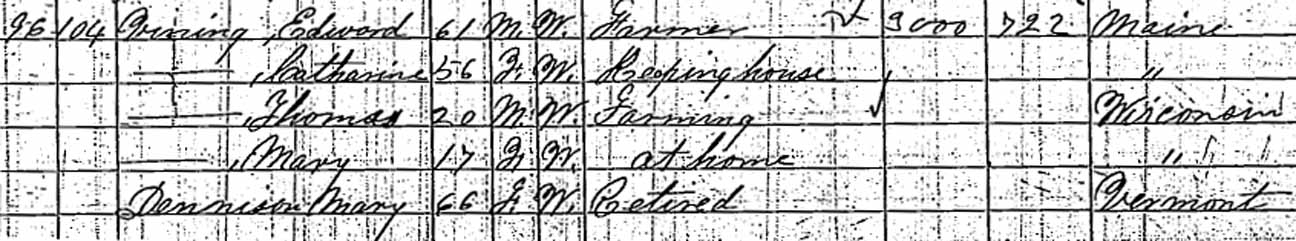 96 104 Edward 61 M. W. Farmer 3000 722 Maine
——— , Catharine 56 F. W. Keeping house "
——— , Thomas 20 M. W. Farming Wisconsin
——— , Mary 17 F. W. at home "
Dennison Mary 66 F. W. Retired Vermont